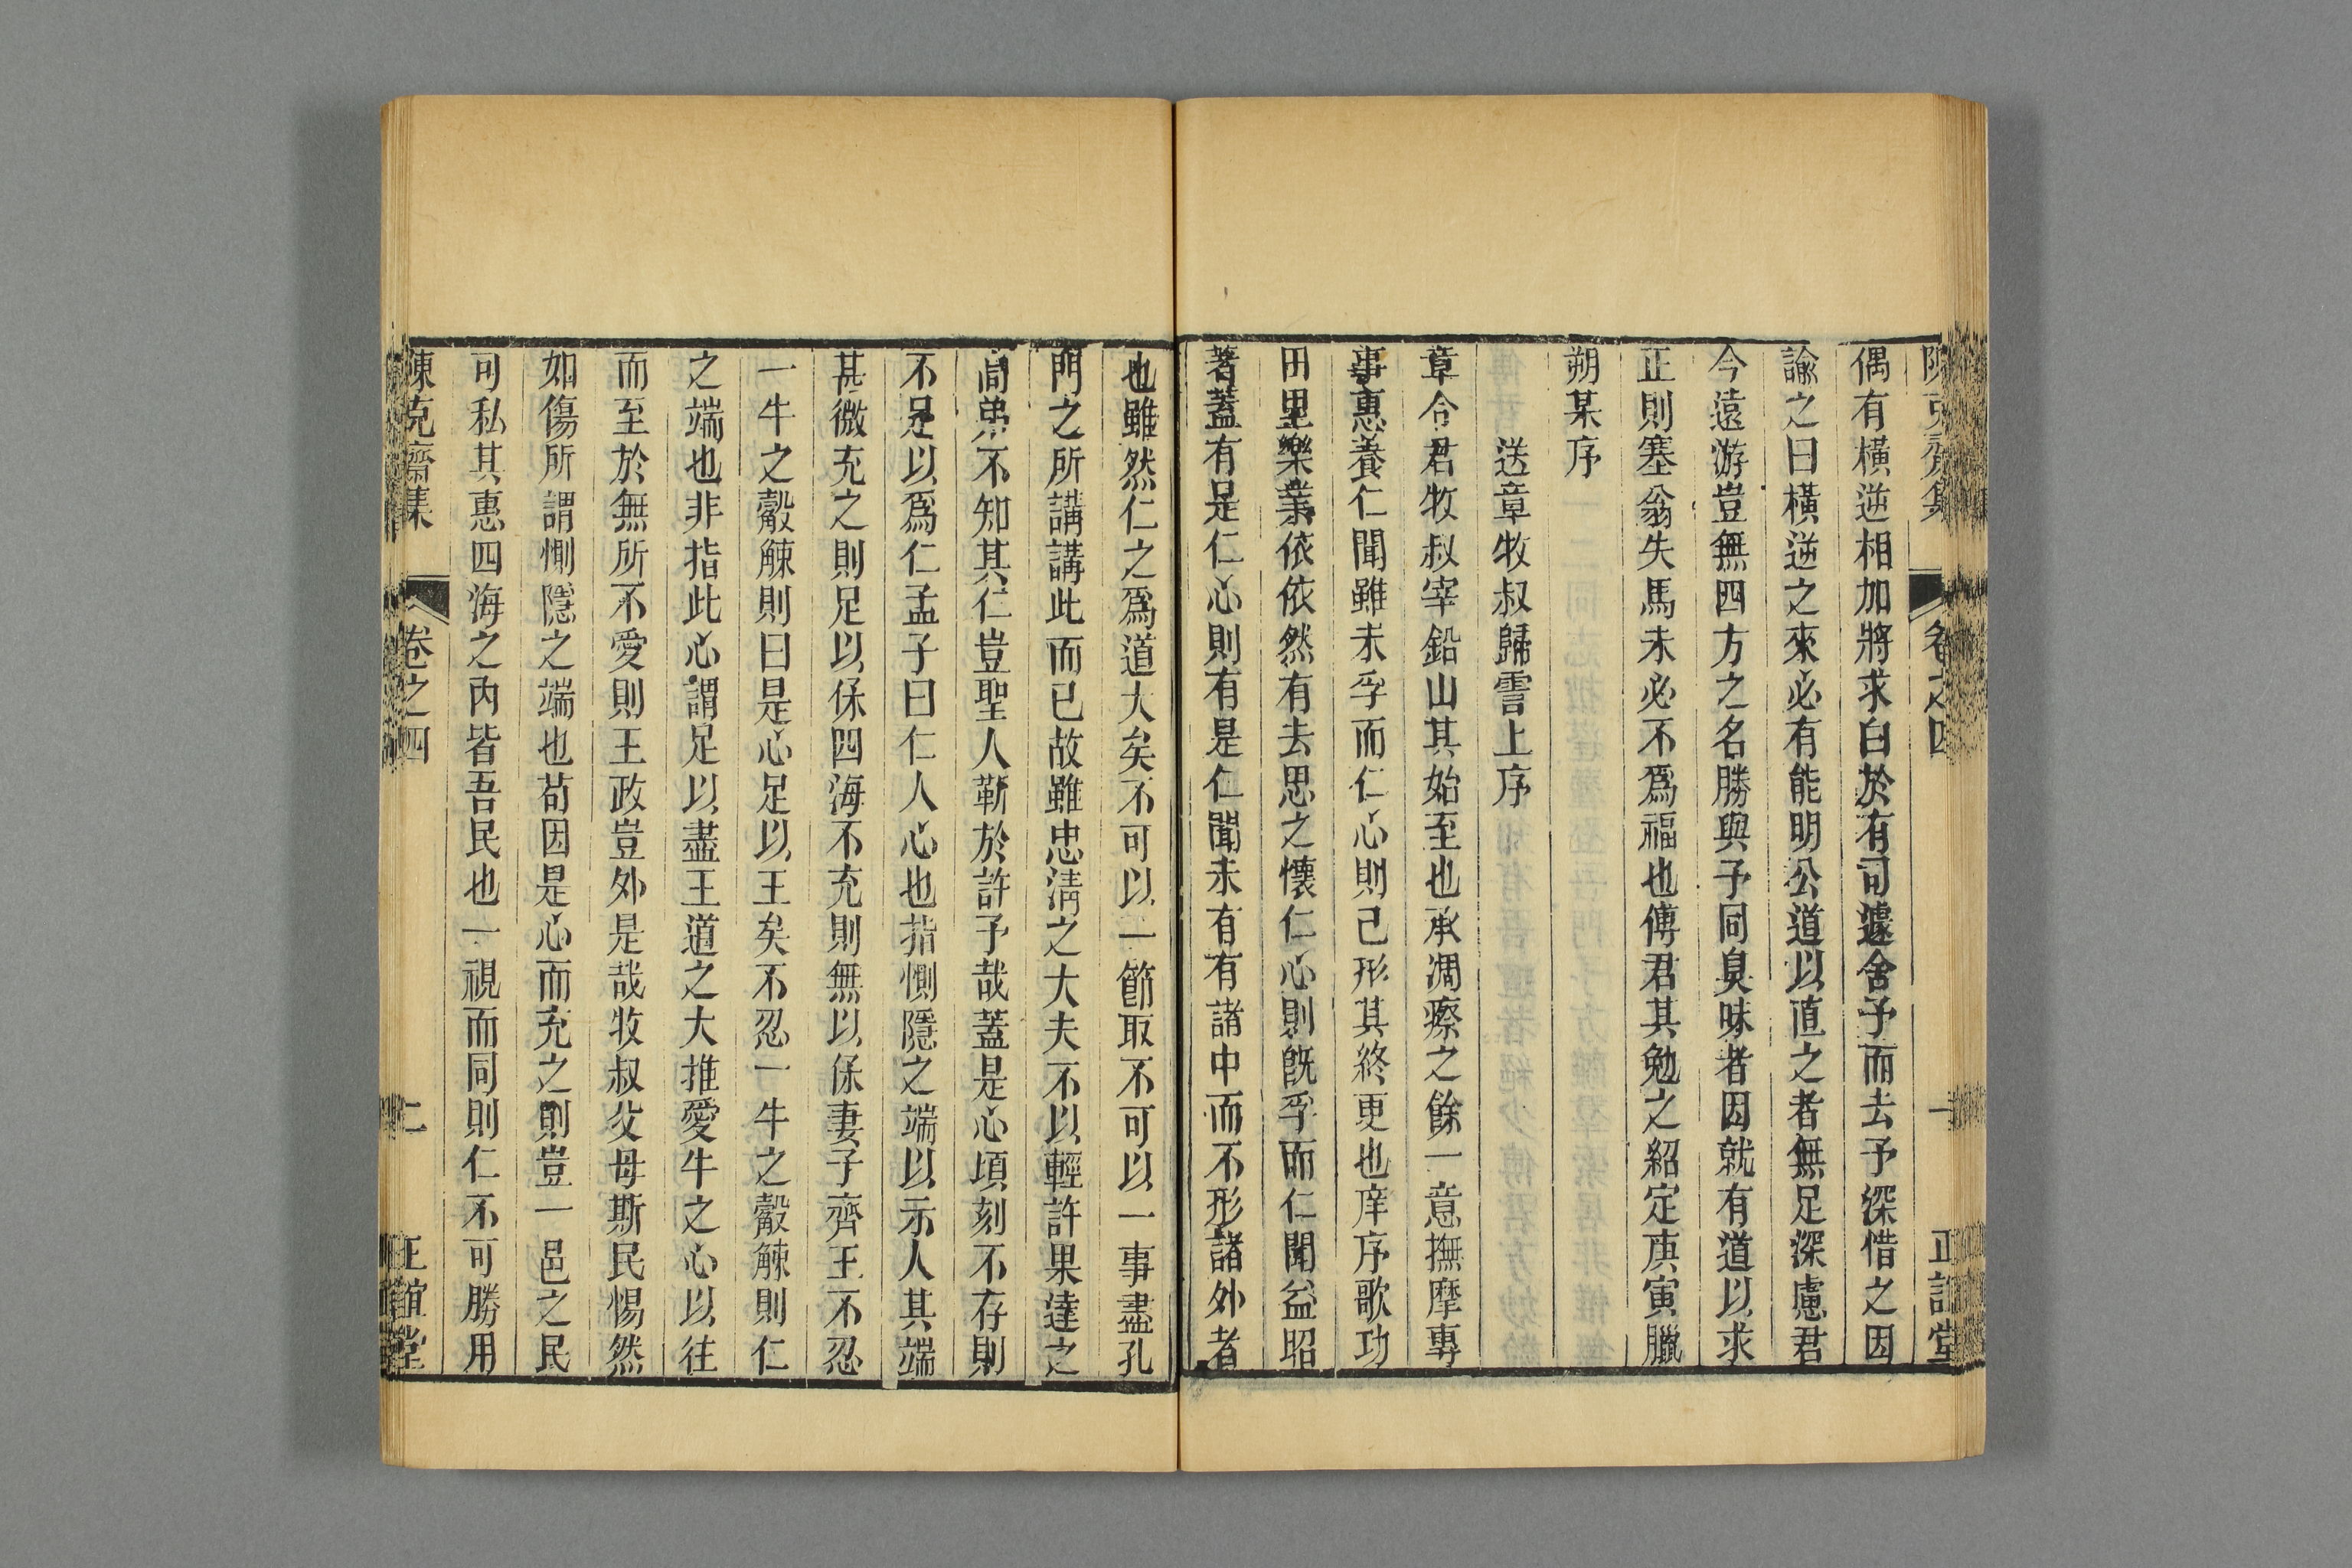 陳克齋集 卷之四 一 正誼堂
偶有橫逆相加將求白於有司遽舍予而去予深惜之因
諭之曰橫逆之來必有能明公道以直之者無足深慮君
今遠游豈無四方之名勝與予同臭味者因就有道以求
正則塞翁失馬未必不爲福也傅君其勉之紹定庚寅臘
朔某序
送章牧叔歸霅上序
章令君牧叔宰鉛山其始至也承凋瘵之餘一意撫摩專
事惠養仁聞雖未孚而仁心則已形其終更也庠序歌功
田里樂業依依然有去思之懷仁心則旣孚而仁聞益昭
著蓋有是仁心則有是仁聞未有有諸中而不形諸外者
也雖然仁之爲道大矣不可以一節取不可以一事盡孔
門之所講講此而已故雖忠淸之大夫不以輕許果達之
高弟不知其仁豈聖人靳於許予哉蓋是心頃刻不存則
不足以爲仁孟子曰仁人心也指惻隱之端以示人其端
甚微充之則足以保四海不充則無以保妻子齊王不忍
一牛之觳觫則曰是心足以王矣不忍一牛之觳觫則仁
之端也非指此心謂足以盡王道之大推愛牛之心以往
而至於無所不愛則王政豈外是哉牧叔父母斯民惕然
如傷所謂惻隱之端也苟因是心而充之則豈一邑之民
可私其惠四海之內皆吾民也一視而同則仁不可勝用
陳克齋集 卷之四 二 正誼堂